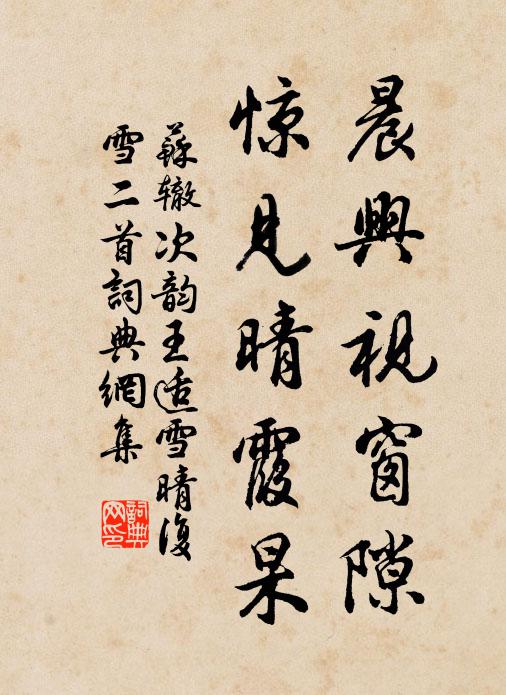 晨興視窗隙
惊見晴霞杲
蘇辙次韵王适雪晴復
雪二首詞典網集
詞典网印